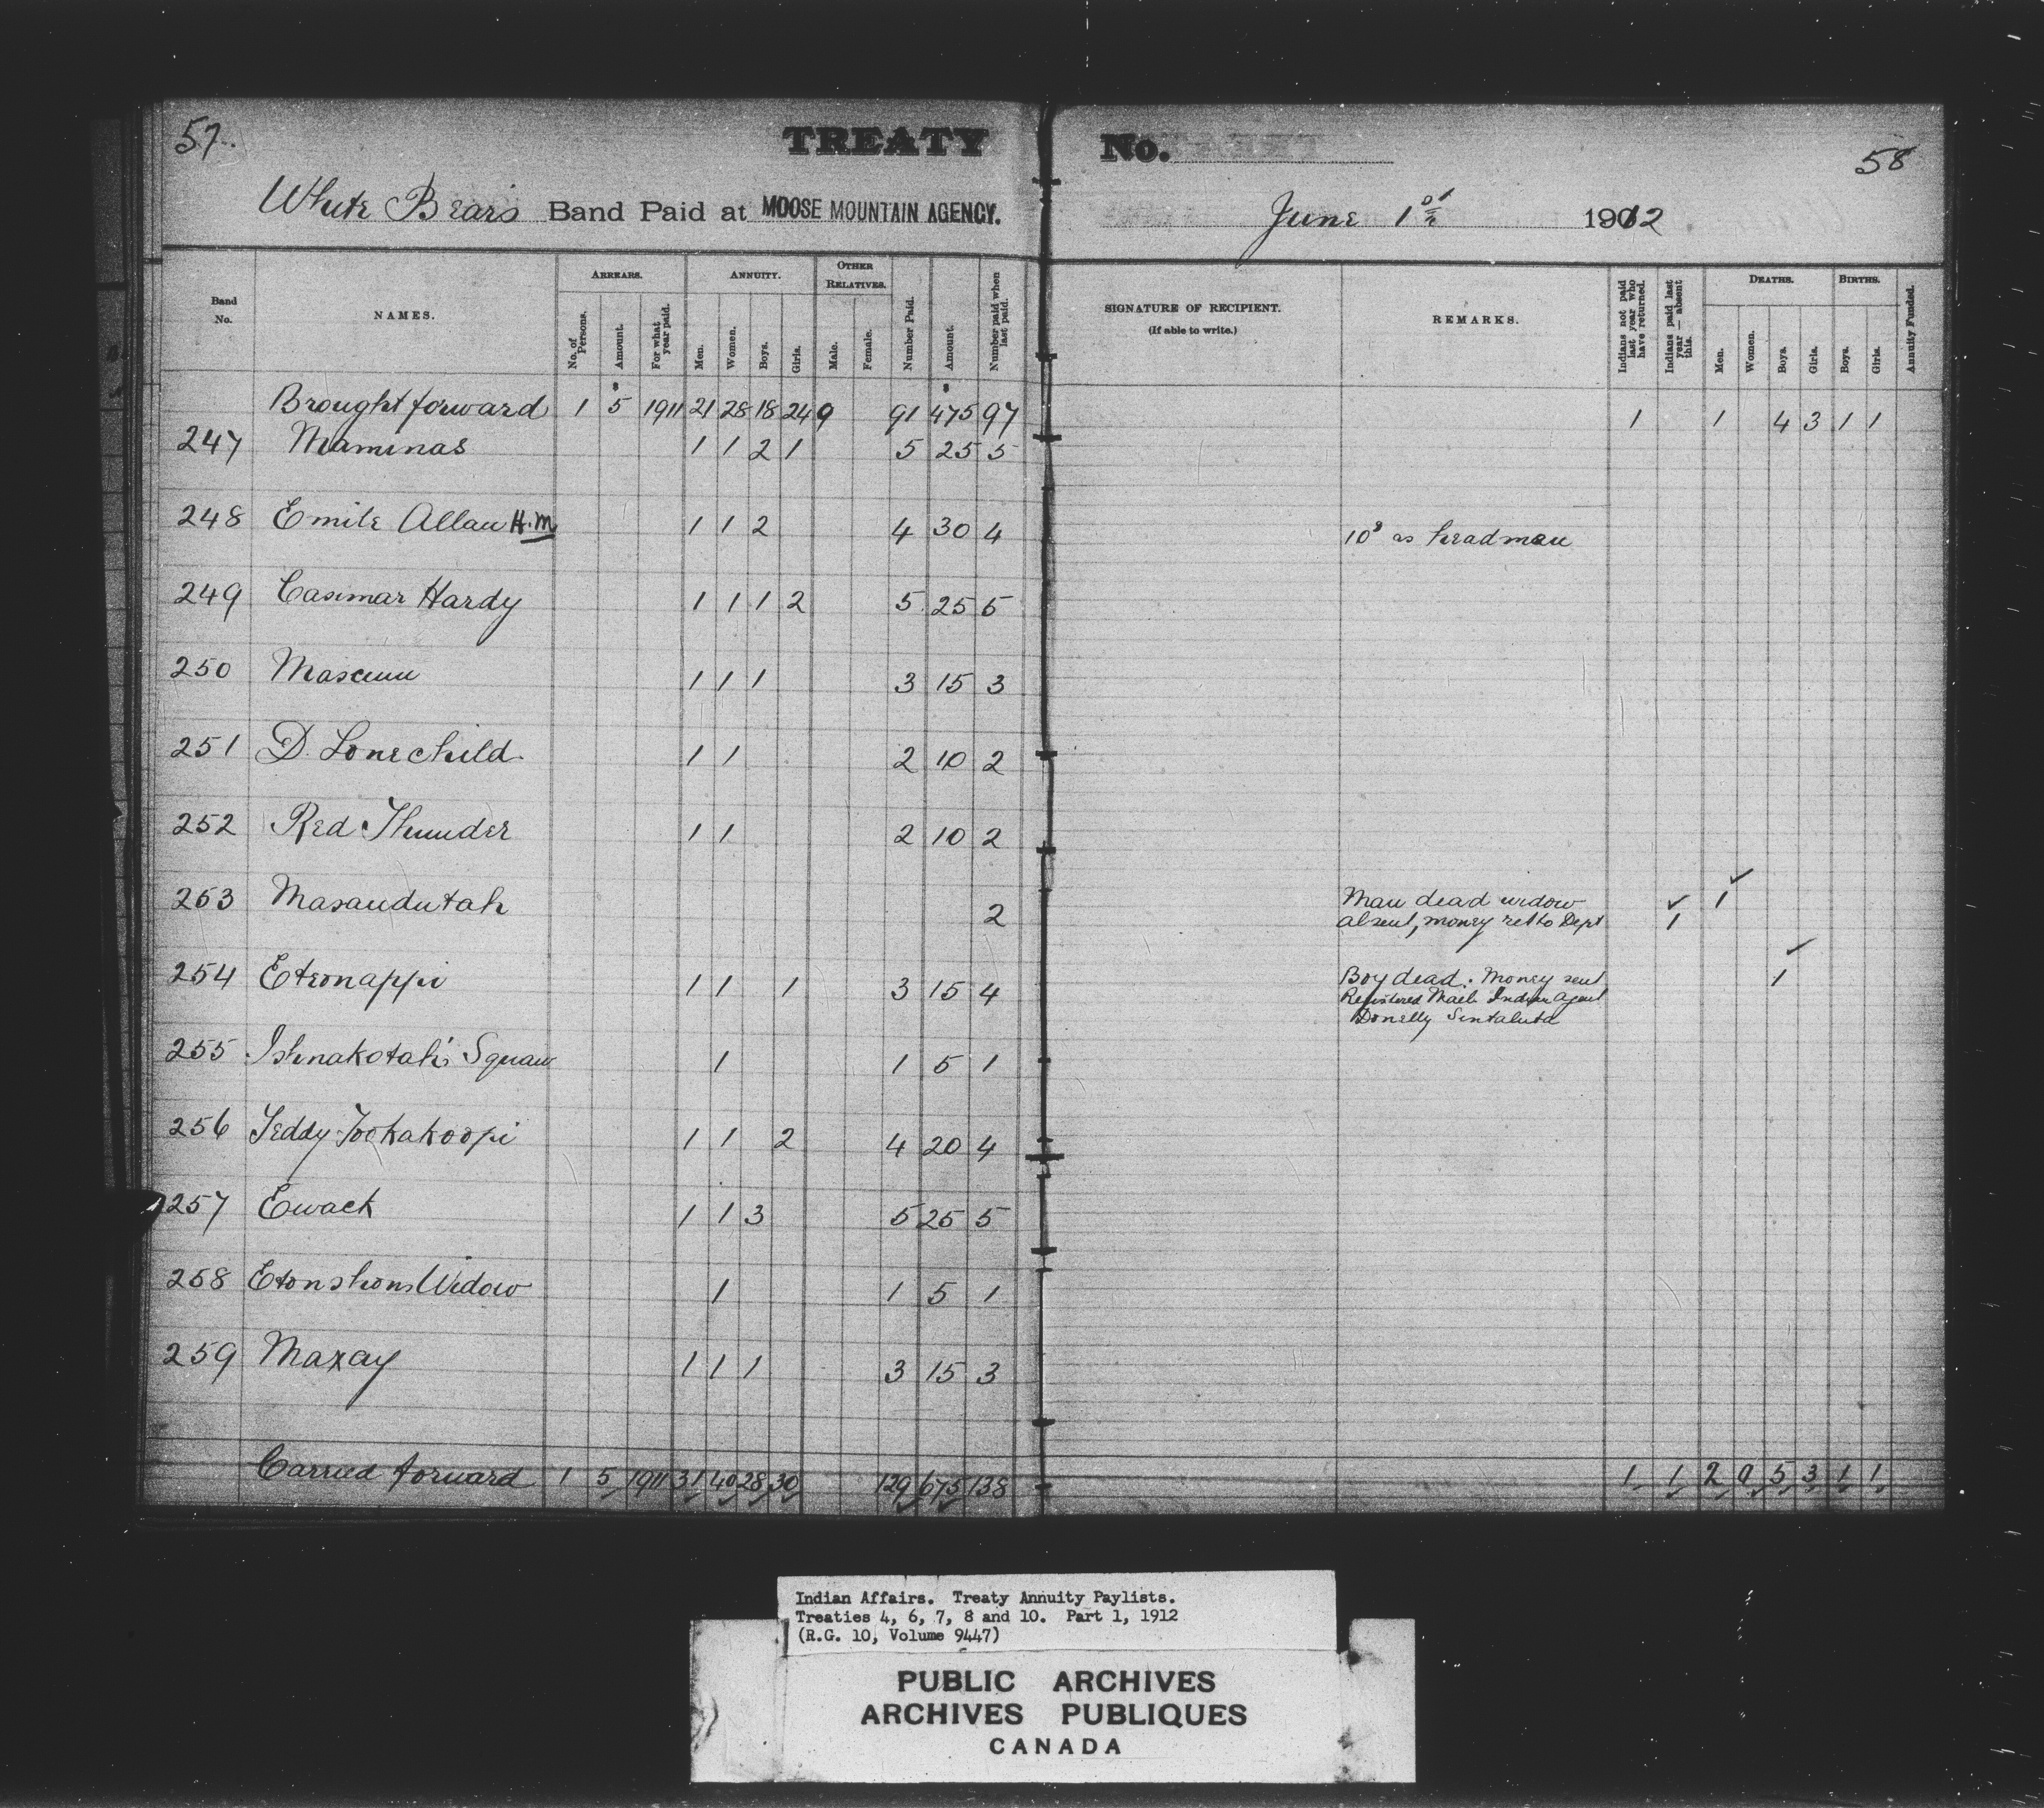 57.
TREATY
No.
58
White Bear's Band Paid at MOOSE MOUNTAIN AGENCY.
June 1st 1912
Band No.
NAMES.
ARREARS.
No. of Persons.
Amount.
For what year paid.
ANNUITY.
Men.
Women.
Boys.
Girls.
OTHER RELATIVES.
Male.
Female.
Number Paid.
Amount.
Number paid when last paid.
SIGNATURE OF RECIPIENT.
(If able to write.)
REMARKS.
Indians not paid last year who have returned.
Indians paid last year — absent this.
DEATHS.
Men.
Women.
Boys.
Girls.
BIRTHS.
Boys.
Girls.
Annuity Funded.
Brought forward 1 5 1911 21 28 18 24 9 91 475 97 1 1 4 3 1 1
247 Maminas 1 1 2 1 5 25 5
248 Emile Allan H.M 1 1 2 4 30 4 10$ as headman
249 Casimar Hardy 1 1 1 2 5 25 5
250 1 1 1 3 15 3
251 D. Lonechild 1 1 2 10 2
252 Red Thunder 1 1 2 10 2
253 Masaudutah 2 Man dead widow 1
absent, money ret to Dept 1
254 Eteonappi 1 1 1 3 15 4 Boy dead. Money sent 1
Registered Mail Indian Agent
Donelly Sintaluta
255 Ishnakotah's Squaw 1 1 5 1
256 Teddy Tookakoopi 1 1 2 4 20 4
257 Ewack 1 1 3 5 25 5
258 Etonshons Widow 1 1 5 1
259 Maxay 1 1 1 3 15 3
Carried forward 1 5 1911 31 40 28 30 129 675 138 1 1 2 0 5 3 1 1
Indian Affairs. Treaty Annuity Paylists.
Treaties 4, 6, 7, 8 and 10. Part 1, 1912
(R.G. 10, Volume 9447)
PUBLIC ARCHIVES
ARCHIVES PUBLIQUES
CANADA